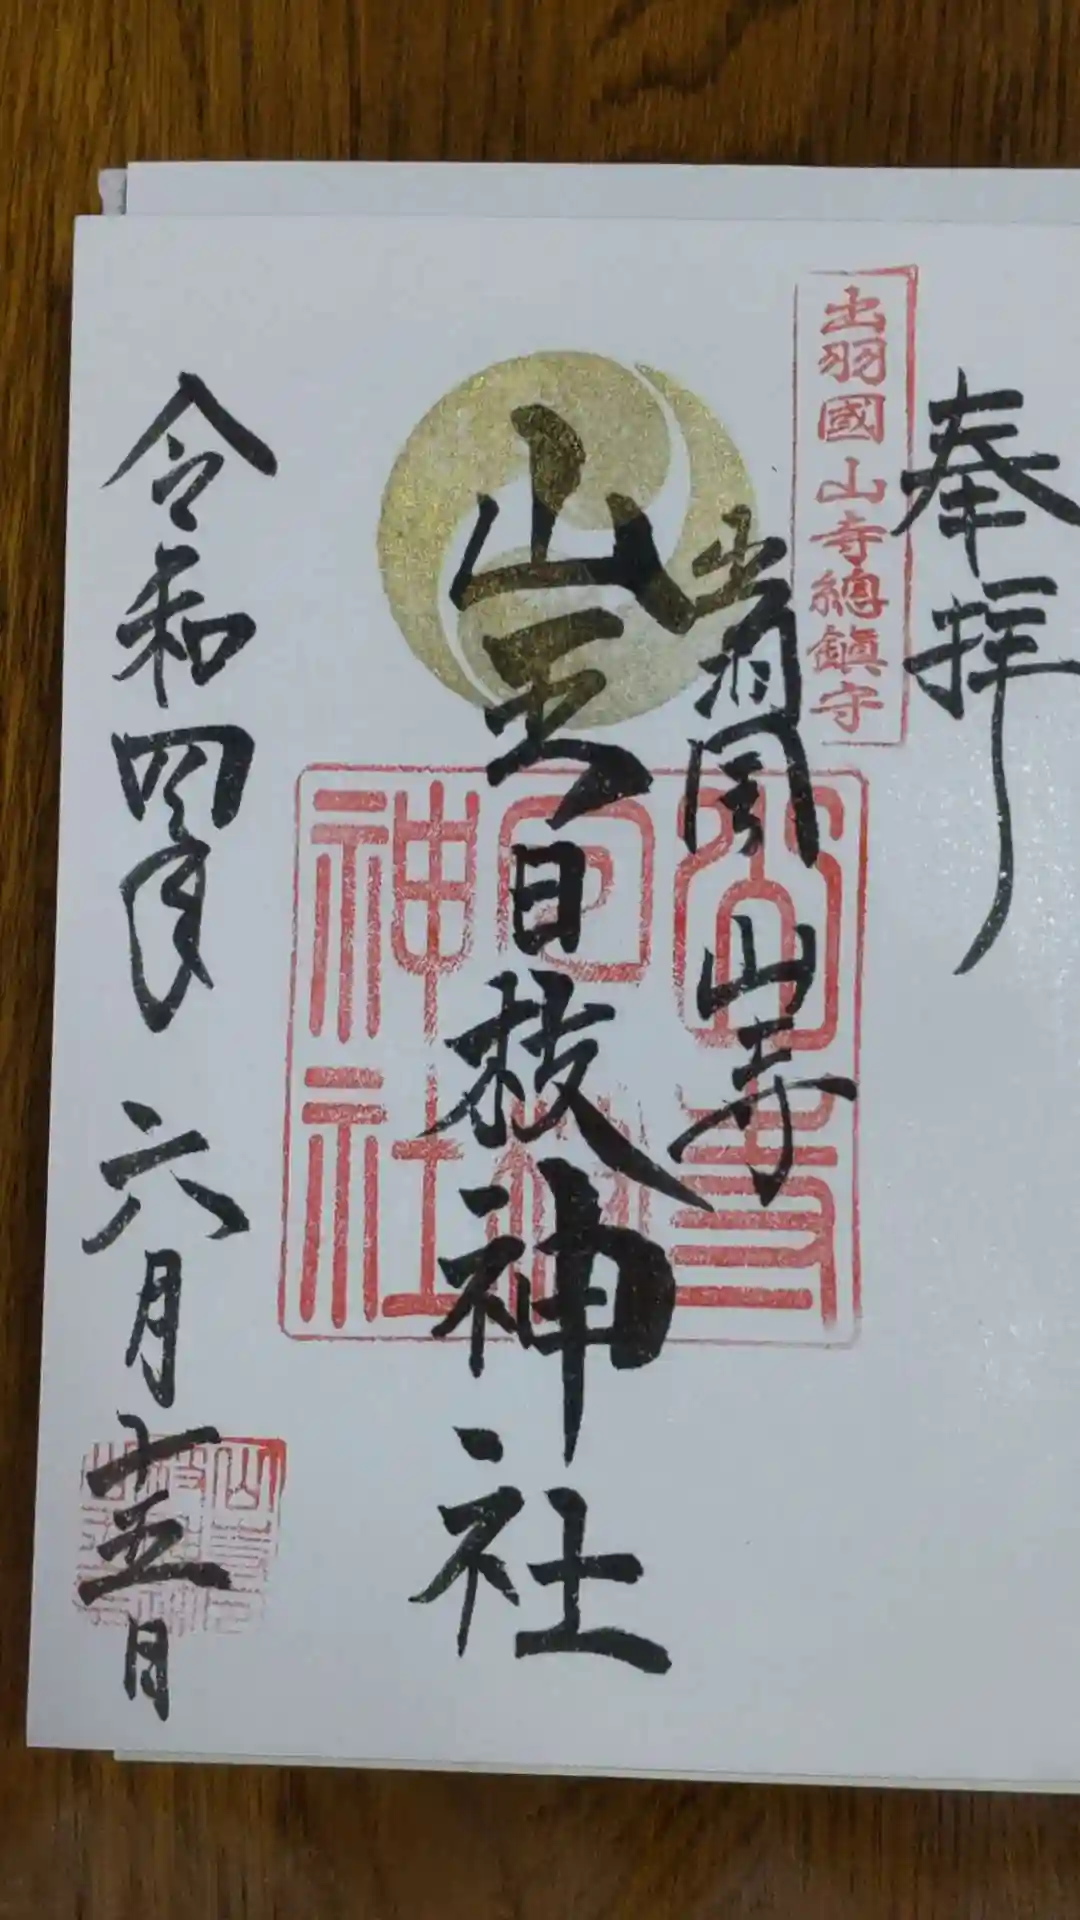 奉拝
出羽國山寺總鎮守
出羽国 山寺
山王日枝神社
令和四年 六月 十五日
山寺日枝神社